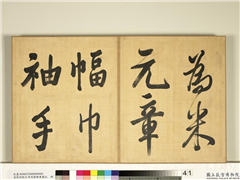 為米
元章
幅巾
袖手
41
國立故宮博物院